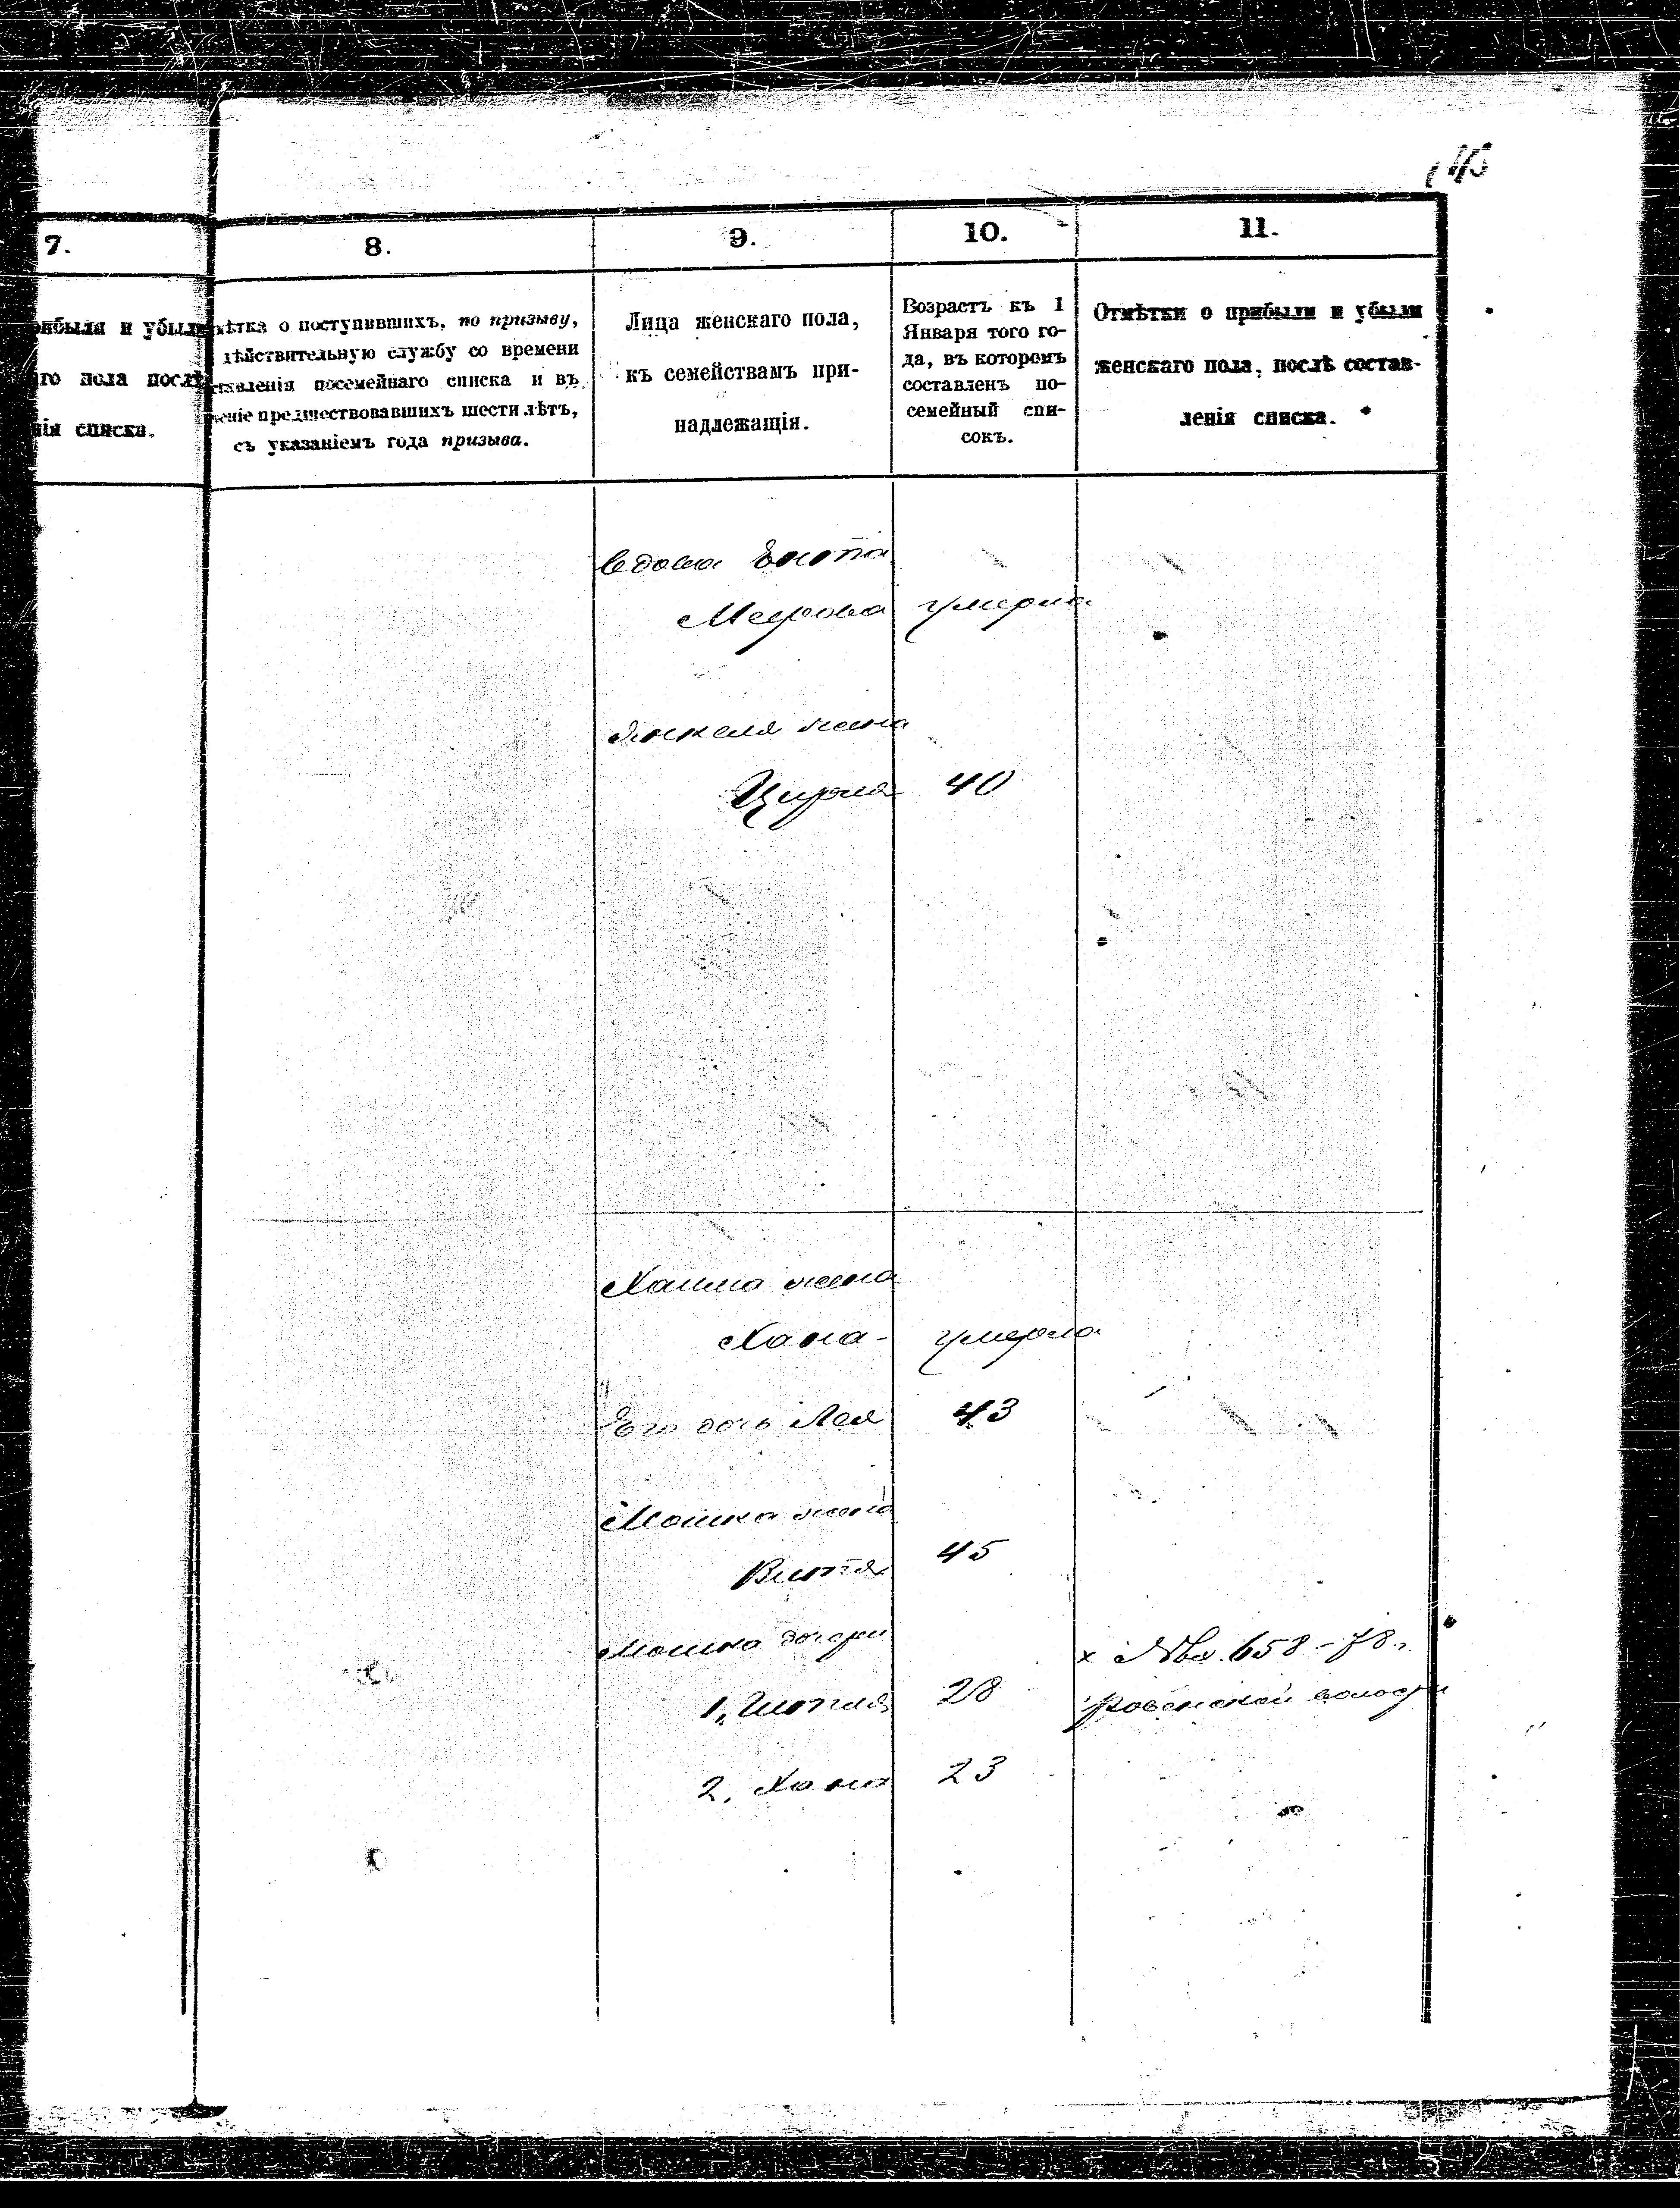 7.
8.
9.
10.
11.
ибыли и убыли
го пола послѣ
нія списка.
ѣтка о поступившихъ, по призыву,
дѣйствительную службу со времени
ставленія посемейнаго списка и въ
ченіе предшествовавшихъ шести лѣтъ,
съ указаніемъ года призыва.
Лица женскаго пола,
къ семействамъ при-
надлежащія.
Возрастъ къ 1
Января того го-
да, въ которомъ
составленъ по-
семейный спи-
сокъ.
Отмѣтки о прибыли и убыли
женскаго пола, послѣ состав-
ленія списка.
вдова Ента
Меерова умерла
Янкеля жена
Цирля 40
Хаима жена
Хана - умерла
Его дочь Лея 43
Мошка жена
Витя 45
Мошка дочери
х № вх. 658 - 78 г.
1, 28 Ровенской волости
2, Хана 23